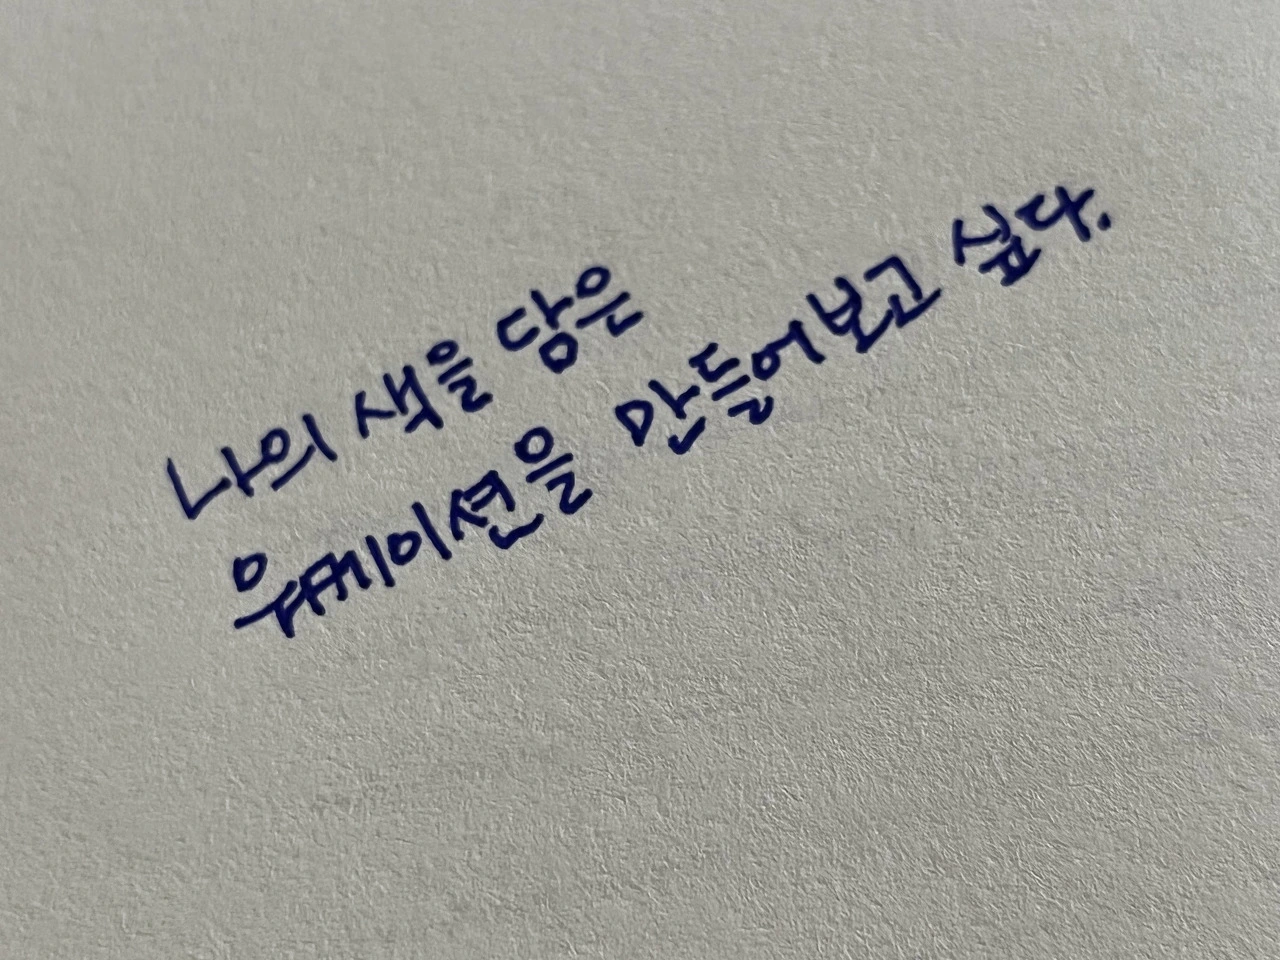 나의 색을 담은
워케이션을 만들어보고 싶다.